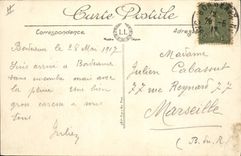 Carte Postale
Correspondance
LL
Bordeaux le 28 Mai 1917
Suis arrivé à Bordeaux
sans encombre mais avec
la pluie
gros caresse à vous
tous
Juliey
Madame
Julien Cabassut
77 rue Reynard 77
Marseille
(B. du R.